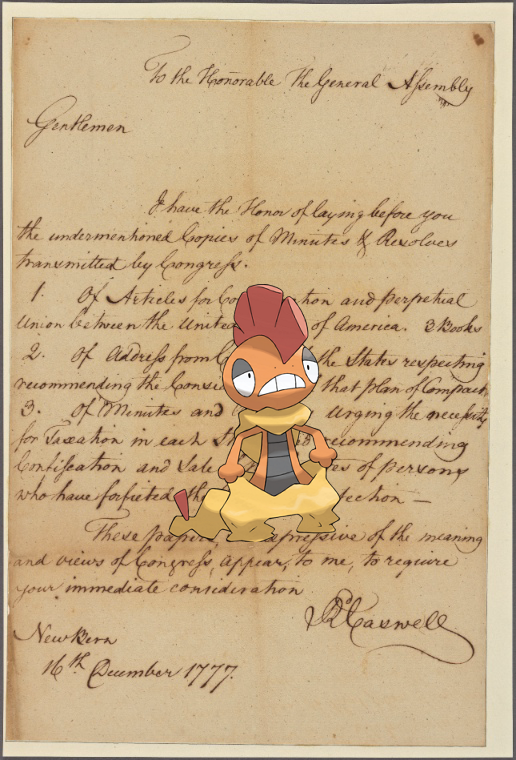 To the Honorable The General Assembly
Gentlemen
I have the Honor of laying before you
the undermentioned Copies of Minutes & Resolves
transmitted by Congress.
1. Of Articles for Co ation and perpetual
Union between the United of America. 3 Books
2. Of Address from C the States respecting
recommending the Conside that plan of Compact
3. Of Minutes and urging the necessity
for Taxation in each St recommending
Confiscation and Sale es of persons
who have forfieted the ection —
These papers, expressive of the meaning
and views of Congress, appear, to me, to require
your immediate consideration
Rd Caswell
New Bern
16th December 1777.